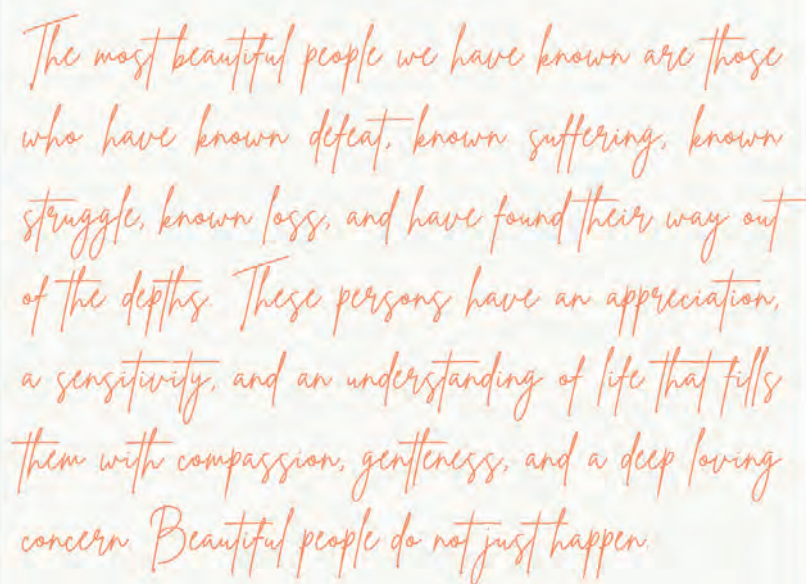 The most beautiful people we have known are those
who have known defeat, known suffering, known
struggle, known loss, and have found their way out
of the depths. These persons have an appreciation,
a sensitivity, and an understanding of life that fills
them with compassion, gentleness, and a deep loving
concern. Beautiful people do not just happen.